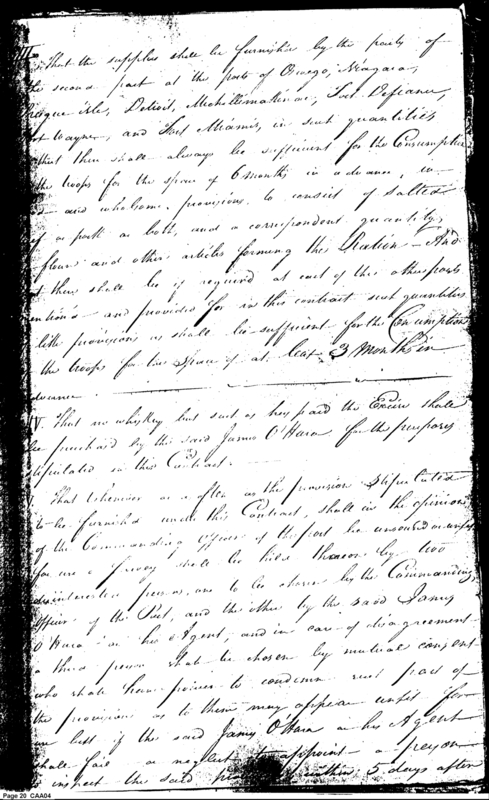 That the supplies shall be furnish'd by the party of
the second part at the posts of Oswego, Niagara,
Presque isle, Detroit, Michilimakinac, Fort Defiance,
Fort Wayne, and Fort Miamis, in such quantities
that there shall always be sufficient for the Consumption
the troops for the space of 6 months in advance,
and wholsome provisions, to consist of salted
or pork or both, and a correspondent quantity
flour and other articles forming the Ration — And
there shall be if required at each of the other posts
and provided for in this contract such quantities
provisions as shall be sufficient for the Consumption
the troops for the space of at least 3 Months in
advance
IV. That no whiskey but such as has paid the Excise shall
be purchased by the said James O'Hara for the purposes
stipulated in this Contract. —
That whenever or as often as the provision stipulated
to be furnish'd under this Contract, shall in the opinion
of the Commanding officer of the post be unsound or unfit
for use a survey shall be held thereon by two
disinterested persons, one to be chosen by the Commanding
officer of the Post, and the other by the said James
O'Hara or his Agent, and in case of disagreement
a third person shall be chosen by mutual consent
who shall have power to condemn such part of
the provisions as to them may appear unfit for
use but if the said James O'Hara or his Agent
shall fail or neglect to appoint a person
to inspect the said within 5 days after
Page 20 CAA04